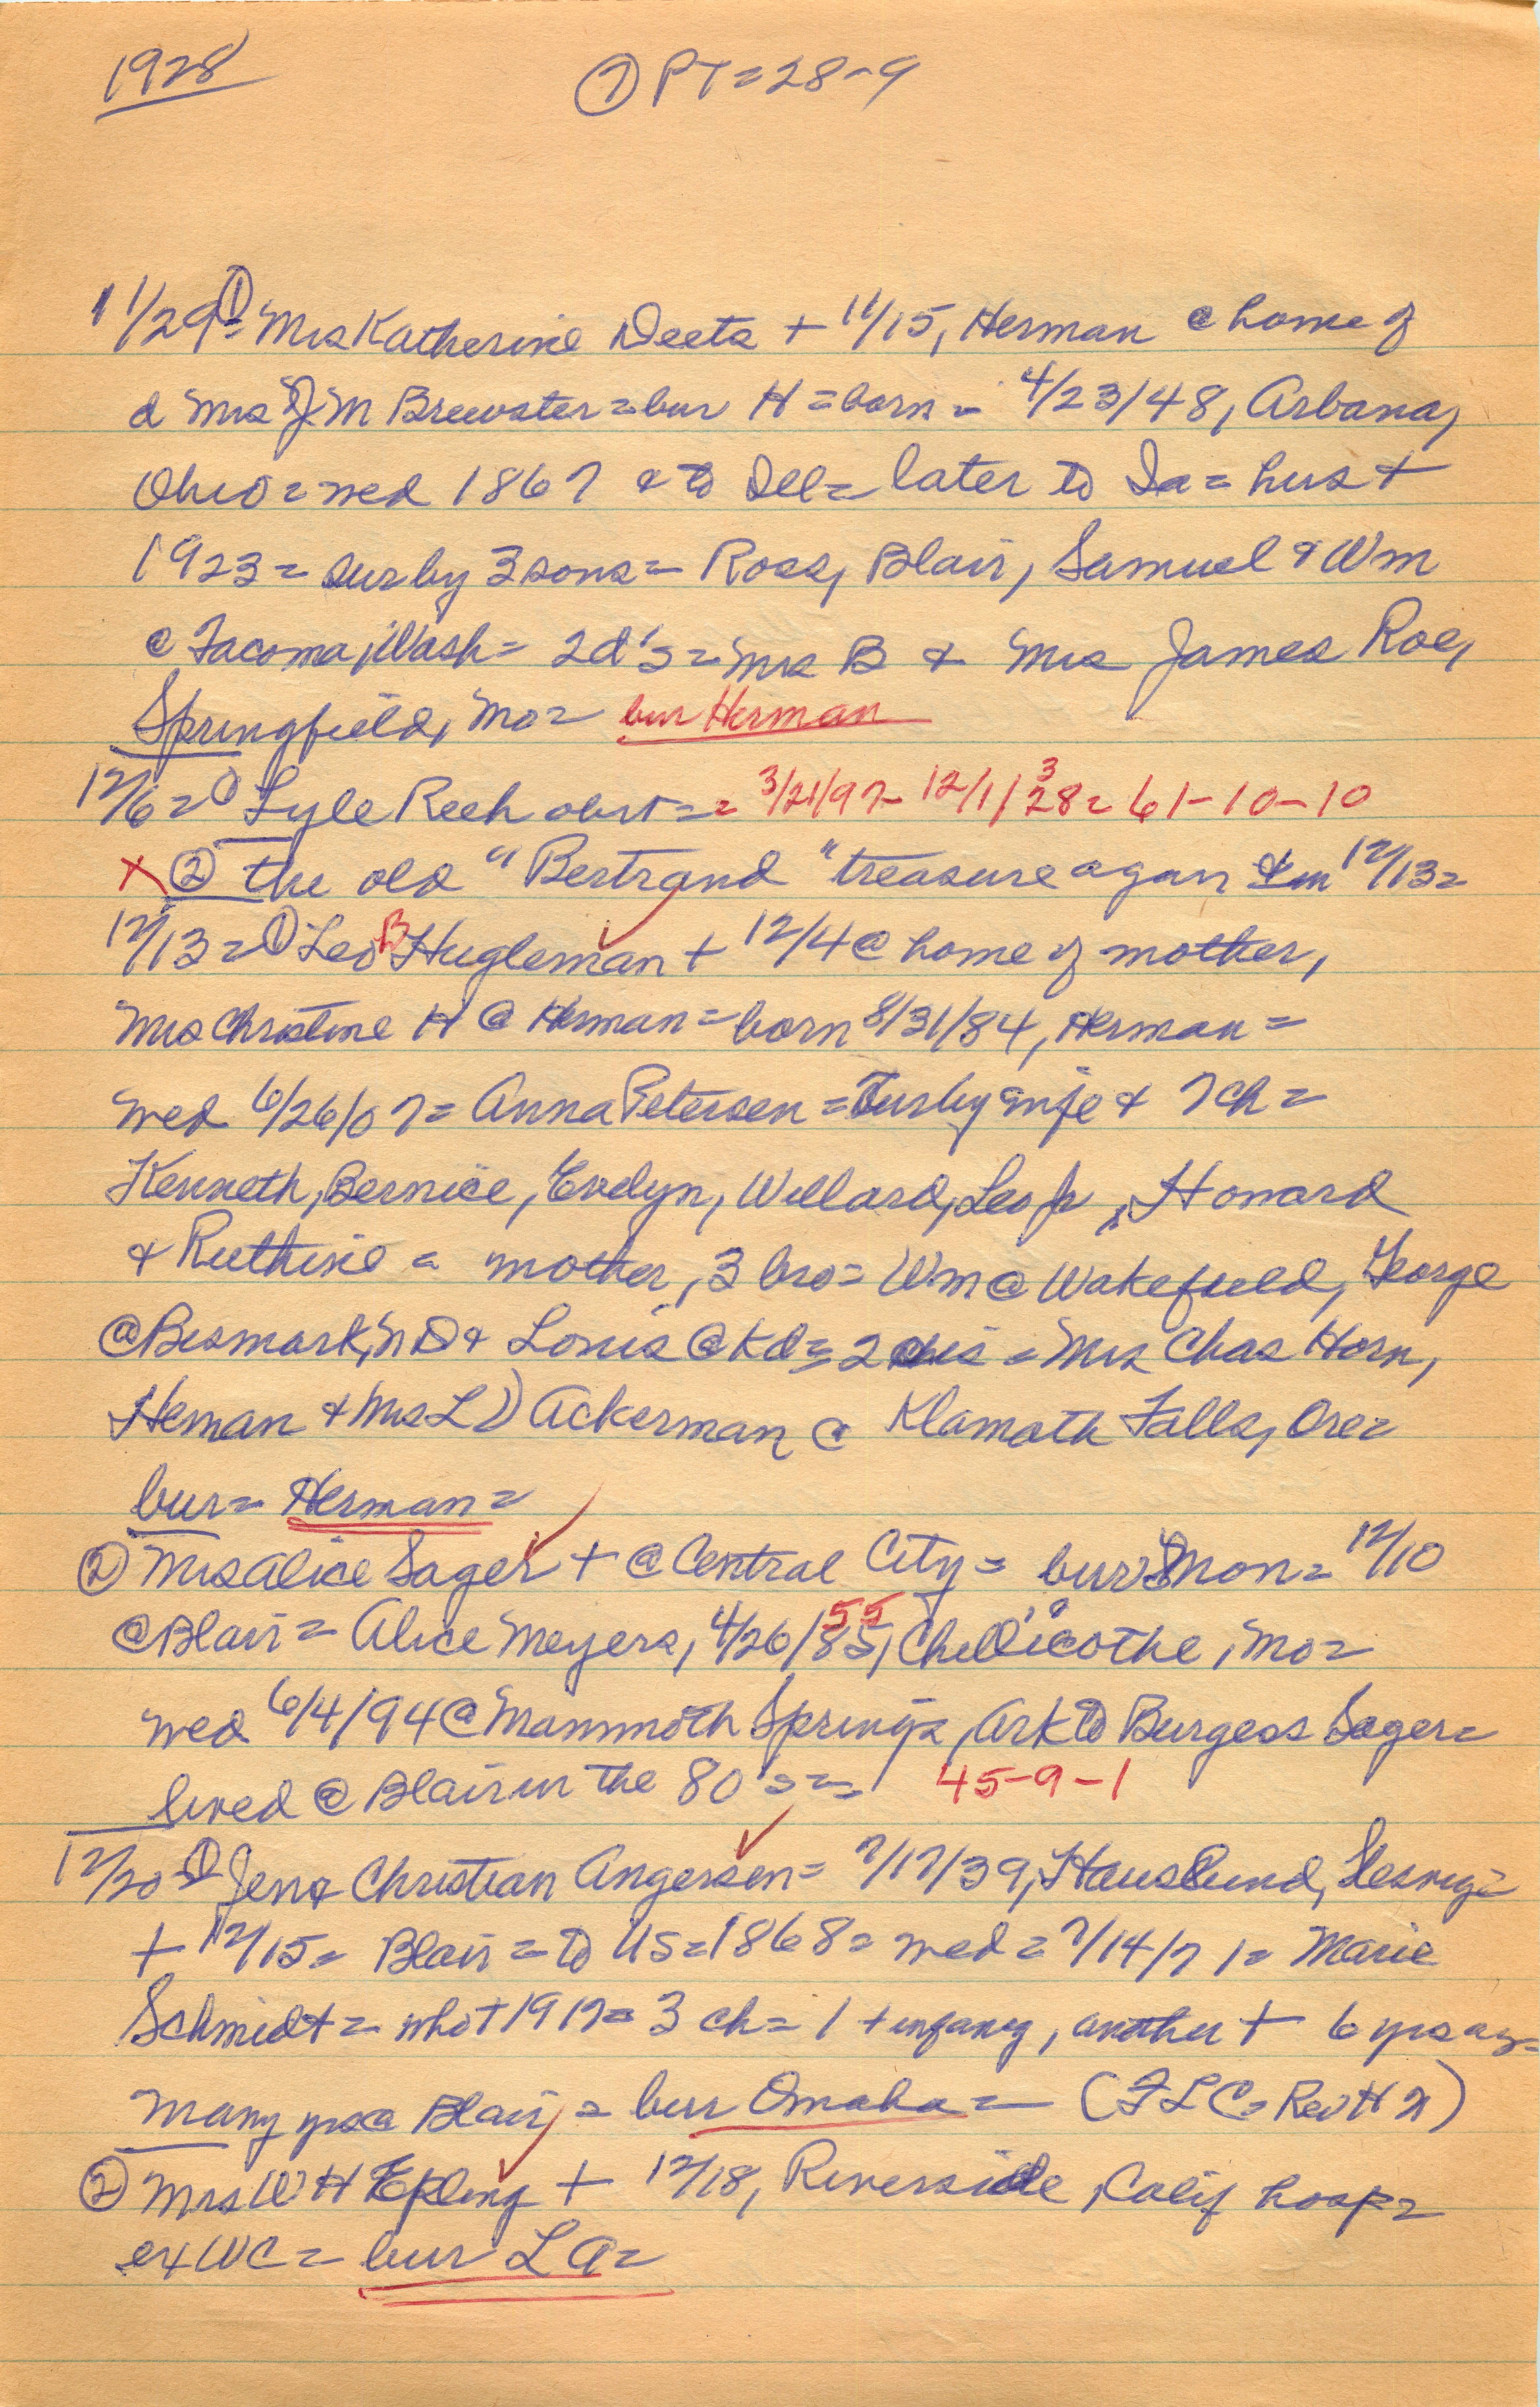 1928 ⑦ PT=28-9
11/29=① Mrs Katherine Deets + 11/15, Herman @ home of
d Mrs J M Brewster=bur H=born= 4/23/48, Arbana,
Ohio=wed 1867 & to Ill= later to Ia= hus +
1923= sur by 3 sons= Ross, Blair, Samuel & Wm
@ Tacoma, Wash= 2d's= Mrs B & Mrs James Roe,
Springfield, Mo= bur Herman
12/6=① Lyle Reeh obit== 3/21/97- 12/1/28= 61-10-10
3
X ② the old "Bertrand" treasure again & in 12/13=
12/13=① Leo B Hugleman + 12/4 @ home of mother,
Mrs Christine H @ Herman=born 8/31/84, Herman=
wed 6/26/07= Anna Petersen=Sur by wife & 7 ch=
Kenneth, Bernice, Evelyn, Willard, Leo Jr, Howard
& Ruthine= mother, 3 bro= Wm @ Wakefield, George
@ Bismark, ND & Louis @ Kd= 2 sis= Mrs Chas Horn,
Heman & Mrs L D Ackerman @ Klamath Falls, Ore=
bur= Herman=
② Mrs Alice Sager + @ Central City= bur Mon= 12/10
@ Blair= Alice Meyers, 4/26/85, Chillicothe, Mo=
55
wed 6/4/94 @ Mammoth Springs, Ark to Burgess Sager=
lived @ Blair in the 80's== 45-9-1
12/20=① Jens Christian Angersen= 7/17/39, Hauslund, Slesvig=
+ 12/15= Blair= to US=1868= wed= 7/14/71= Marie
Schmidt= who + 1917= 3 ch= 1 + infancy, another + 6 yrs ag=
many yrs @ Blair= bur Omaha= (FLC= Rev H N)
② Mrs W H Epling + 12/18, Riverside, Calif hosp=
ex WC= bur L A=